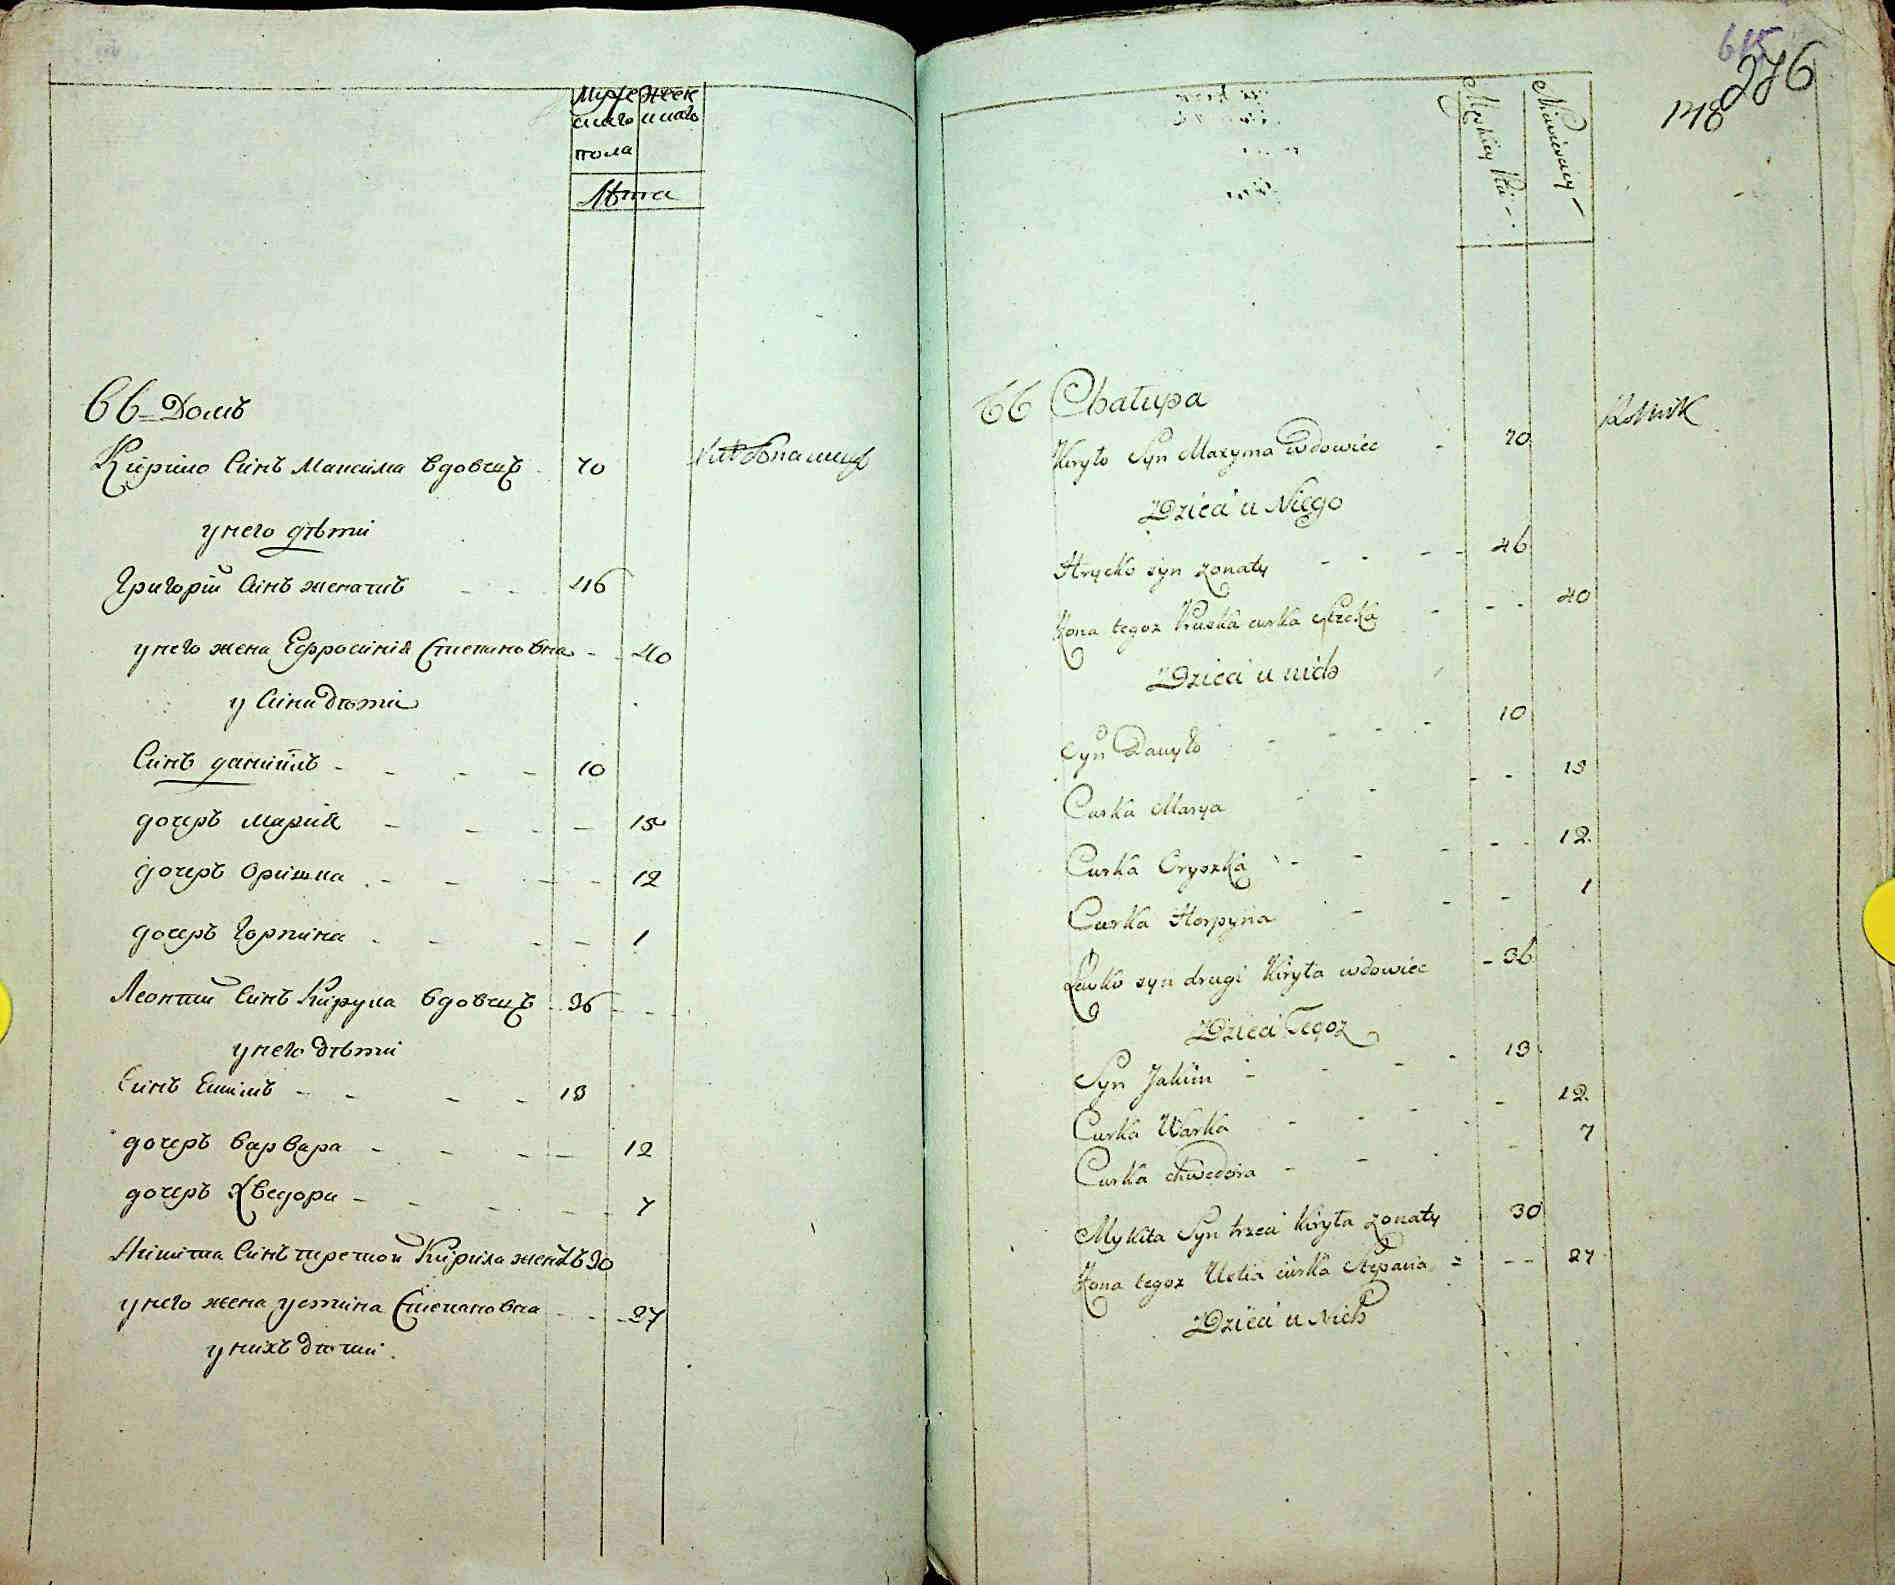 Мужe Жен
скаго скаго
пола
Лѣта
66 Домъ
Кирило Синъ Максима вдовецъ 70
у него дѣти
Григорій Синъ женатъ 46
у него жена Ефросинія Степановна 40
у Сина дѣти
Синъ данііилъ 10
дочеръ Марія 15
дочеръ Оришка 12
дочеръ Горпина 1
Леонтий Синъ Кирила вдовецъ 36
у него дѣти
Синъ Екимъ 13
дочеръ варвара 12
дочеръ Хведора 7
Никита Синъ третой Кирила женатъ 30
у него жена устина Степановна 27
у нихъ дѣти
615
276
148
Męskiey Płci
Niewieściey
66 Chałupa
Kiryło Syn Maxyma wdowiec 70 Rolnik
Dzieci u Niego
Hrycko syn żonaty 46
Żona tegoz Pruska curka Stecka 40
Dzieci u nich
Syn Danyło 10
Curka Marya 15
Curka Oryszka 12
Curka Horpyna 1
Lewko syn drugi Kiryła wdowiec 36
Dzieci Tegoz
Syn Jakim 13
Curka Warka 12
Curka Chwedora 7
Mykita Syn trzeci Kiryła żonaty 30
Żona tegoz Ustia curka Stepana 27
Dzieci u Nich